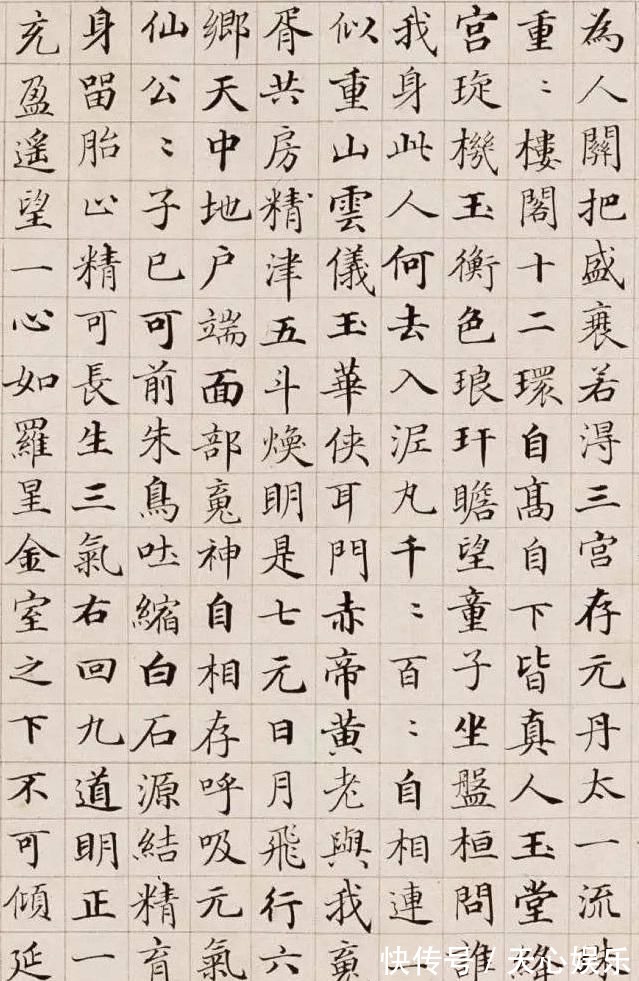 為人關把盛衰若淂三宮存元丹太一流
重〻樓閣十二環自高自下皆真人玉堂絳
宮琁機玉衡色琅玕瞻望童子坐盤桓問誰
我身此人何去入泥丸千〻百〻自相連
似重山雲儀玉華俠耳門赤帝黃老與我䰟
胥共房精津五斗煥明是七元日月飛行六
鄉天中地户端面部䰟神自相存呼吸元氣
仙公〻子已可前朱鳥吐縮白石源結精育
身留胎止精可長生三氣右回九道明正一
充盈遥望一心如羅星金室之下不可傾延
快传号 / 天心娱乐